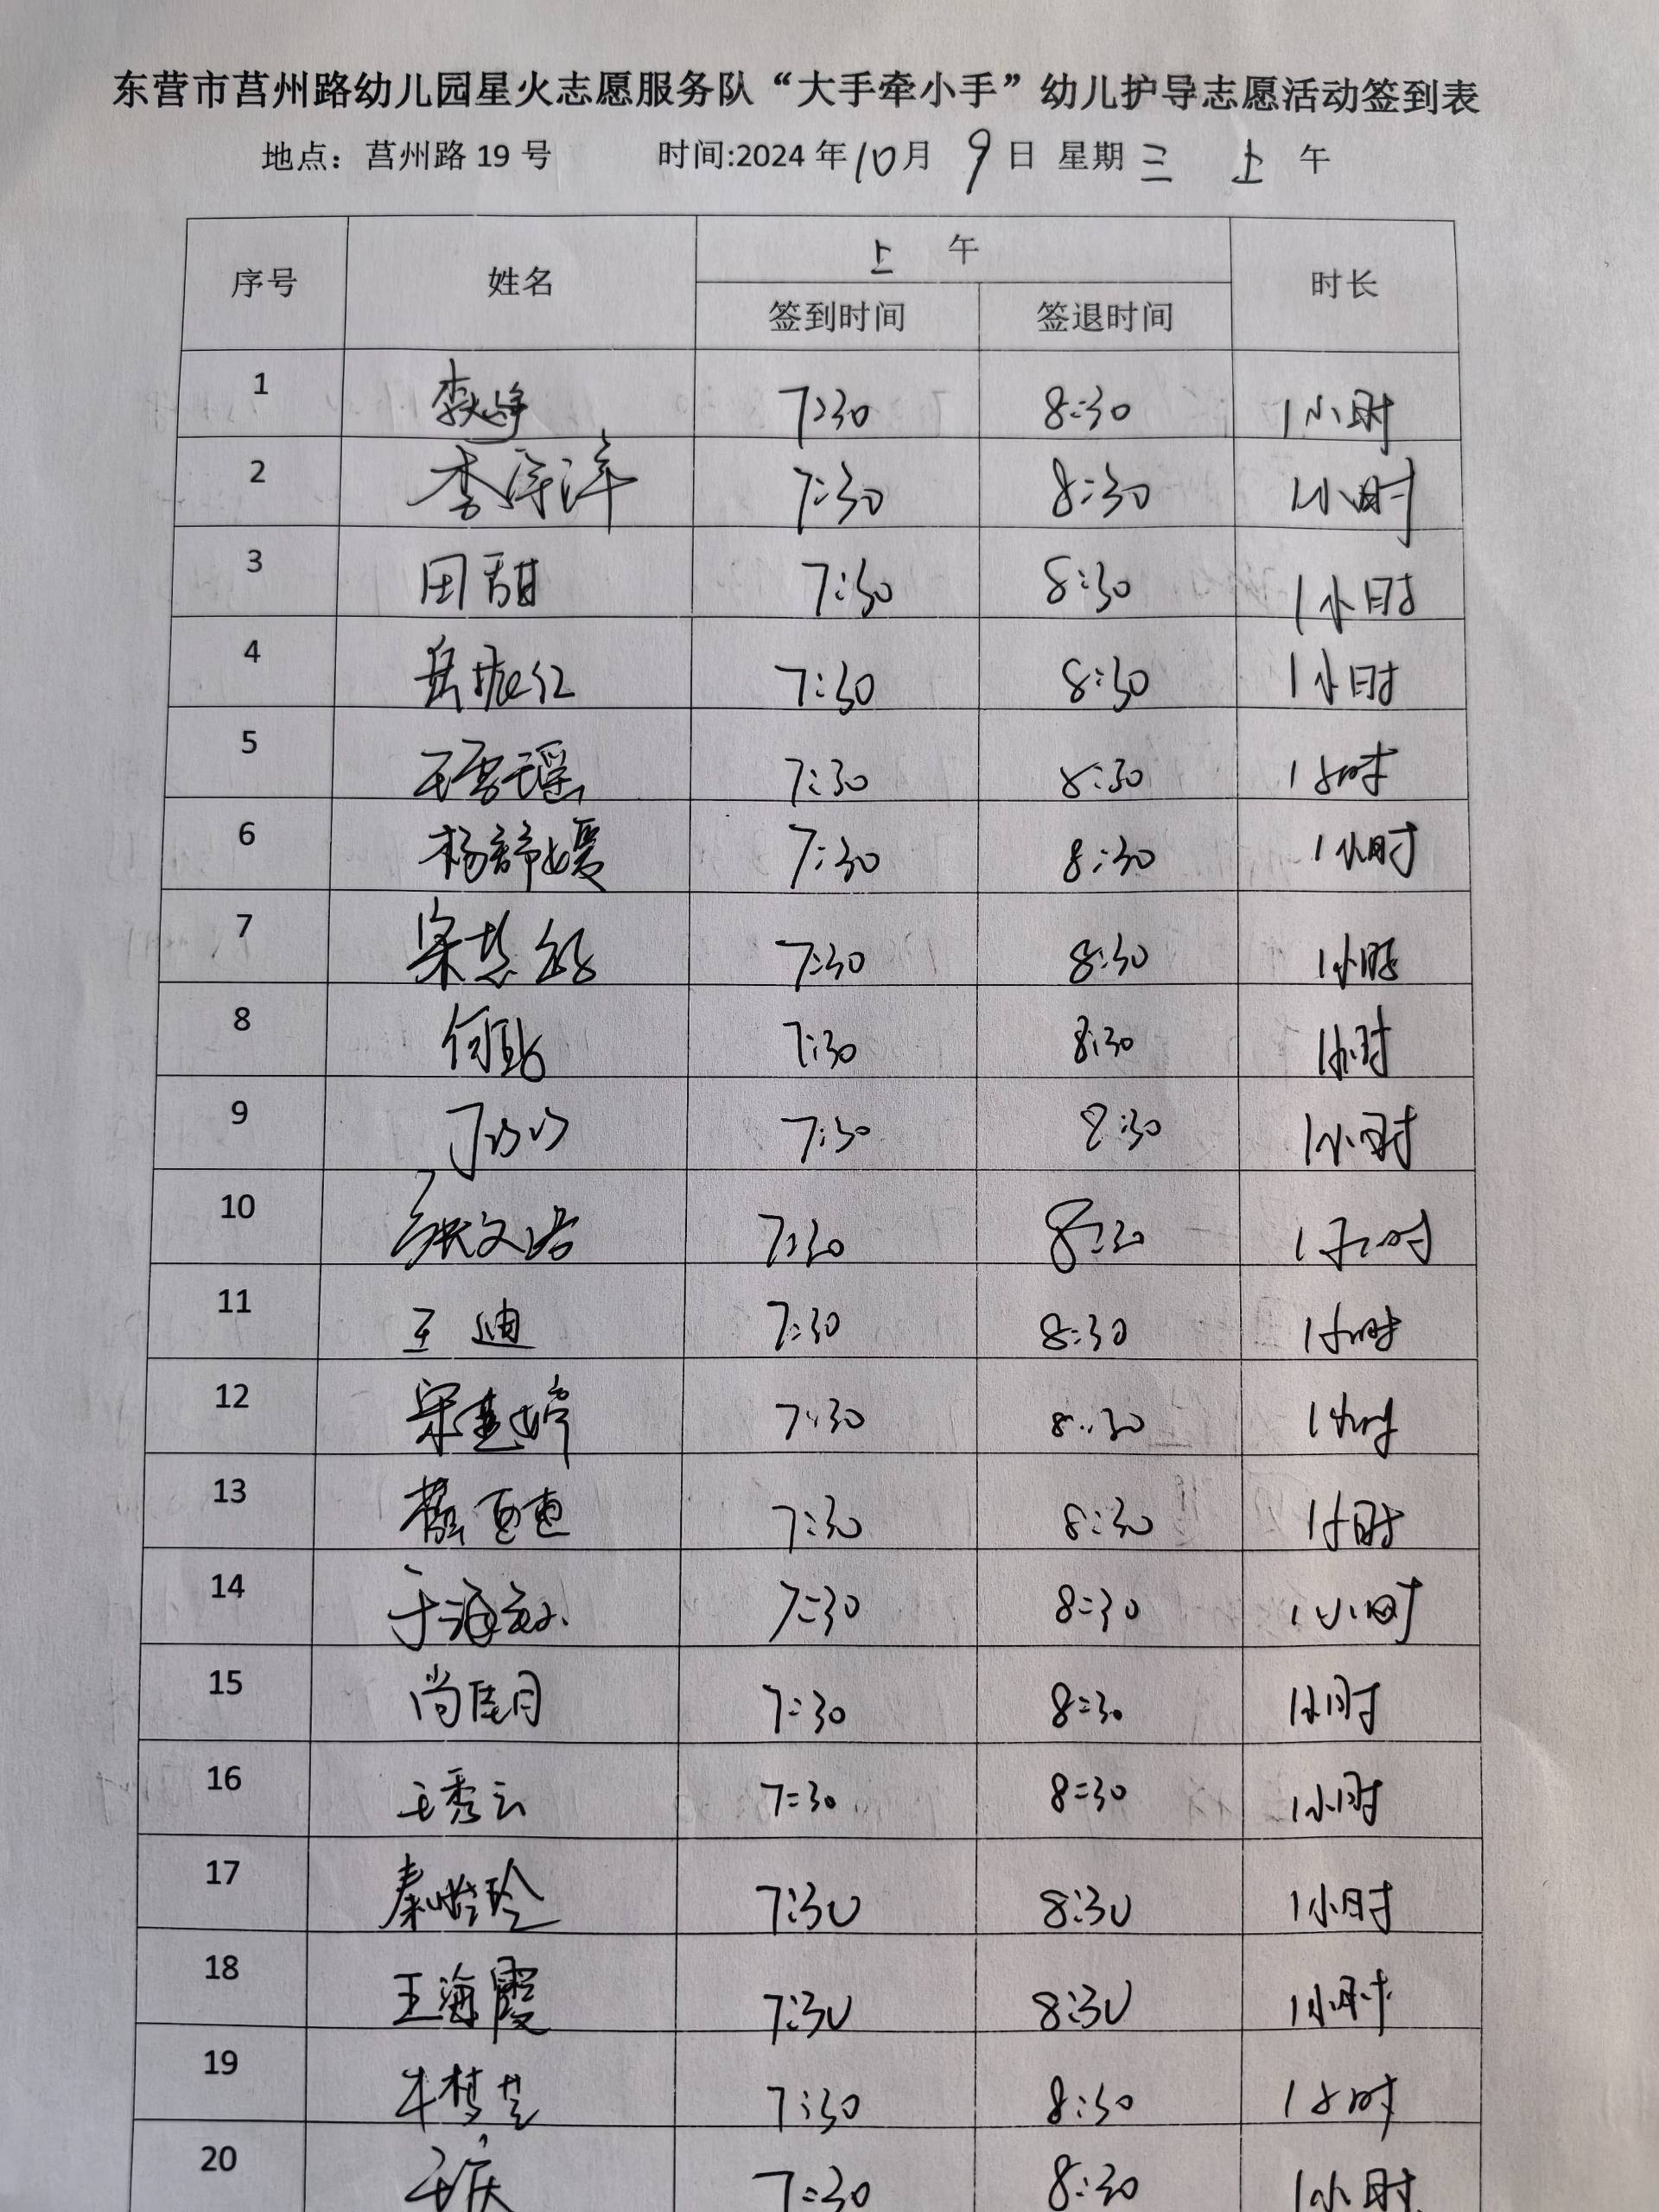 东营市莒州路幼儿园星火志愿服务队“大手牵小手”幼儿护导志愿活动签到表
地点：莒州路 19 号 时间:2024 年 10 月 9 日 星期 三 上 午
序号 姓名 上 午 时长
签到时间 签退时间
1 7:30 8:30 1小时
2 李宇洋 7:30 8:30 1小时
3 田甜 7:30 8:30 1小时
4 岳振红 7:30 8:30 1小时
5 王雪瑶 7:30 8:30 1小时
6 杨媛 7:30 8:30 1小时
7 宋慧 7:30 8:30 1小时
8 何 7:30 8:30 1小时
9 丁 7:30 8:30 1小时
10 张文 7:30 8:30 1小时
11 王迪 7:30 8:30 1小时
12 宋婷 7:30 8:30 1小时
13 7:30 8:30 1小时
14 于海 7:30 8:30 1小时
15 尚佳月 7:30 8:30 1小时
16 王秀云 7:30 8:30 1小时
17 秦玲 7:30 8:30 1小时
18 王海霞 7:30 8:30 1小时
19 牛梦 7:30 8:30 1小时
20 7:30 8:30 1小时